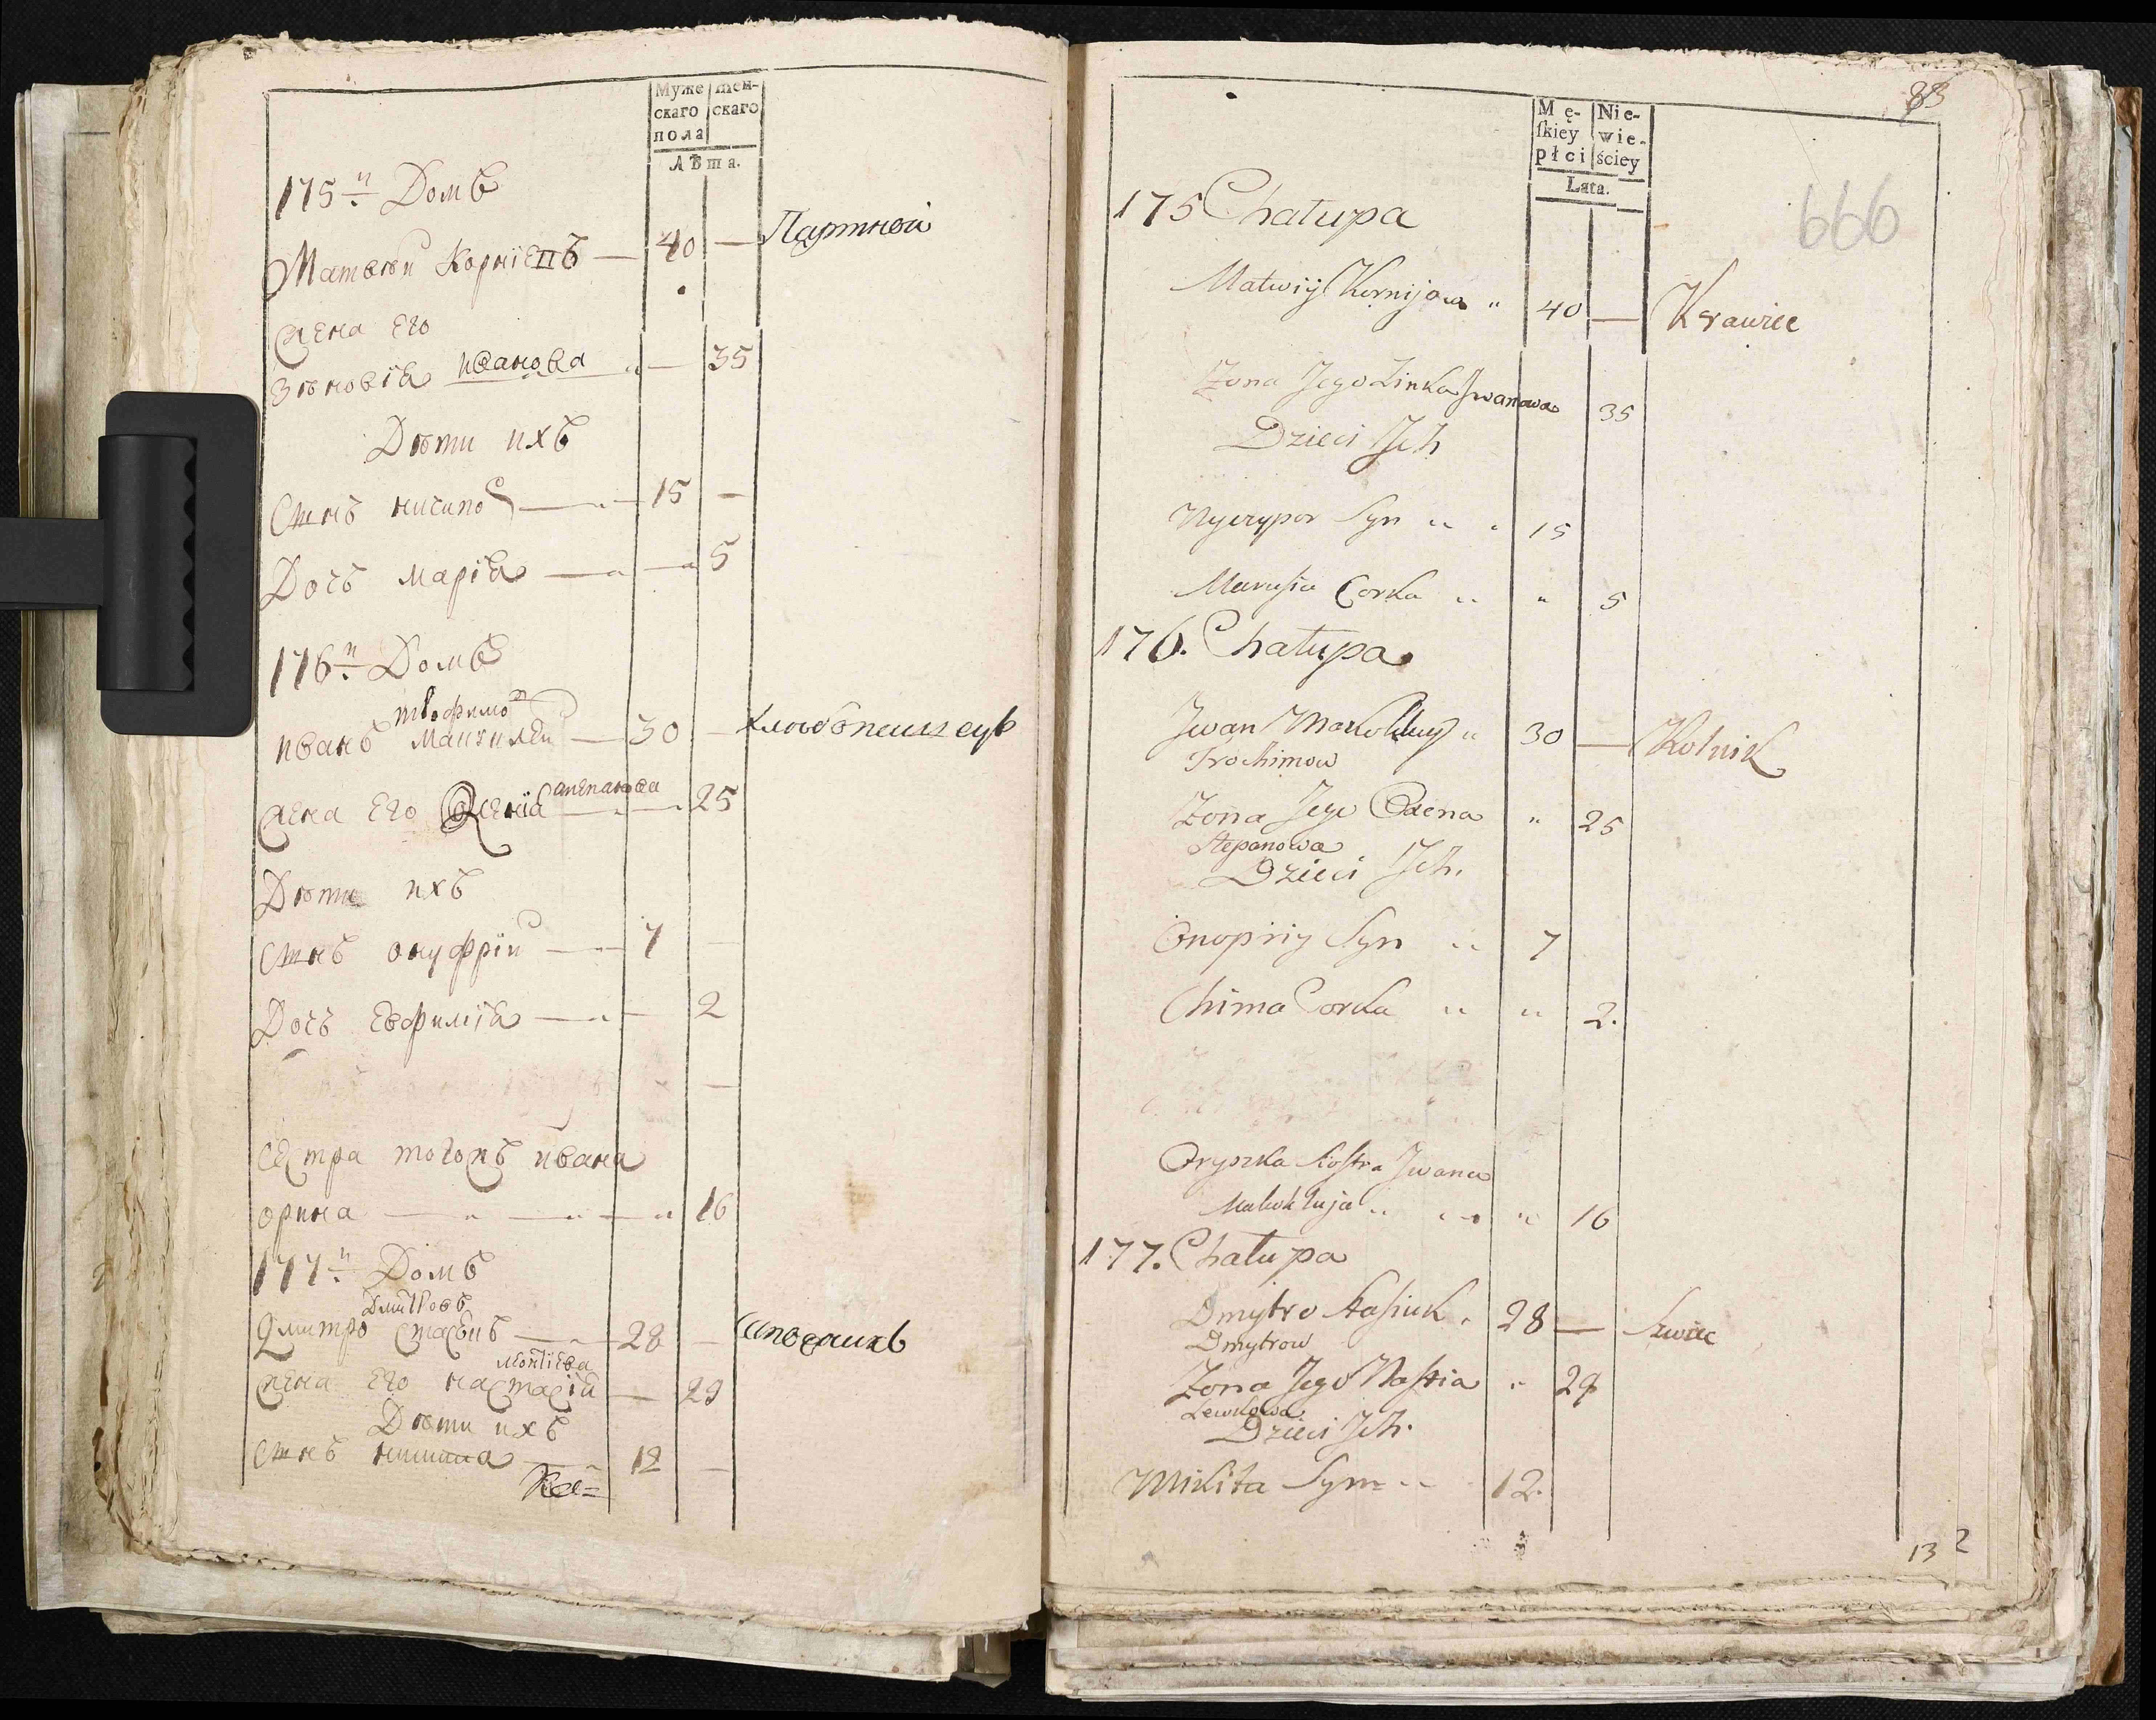 Муже
скаго
пола
жен-
скаго
Лѣта.
175й Домъ
Матвѣй Корнїевъ — 40 —
Жена Его
Зѣновія иванова — 35
Дѣти ихъ
Сынъ ничипор — 15 —
Дочь Марія — 5
176й Домъ
трофимов
иванъ — 30 — Хлѣбопашецъ
степанова
Жена Его Ксенїа — 25
Дѣти ихъ
Сынъ онуфрій — 7
Дочь Евфимія — 2
Сестра тогожъ ивана
орина — 16
177й Домъ
Дмитровъ
Дмитро Стасюкъ — 28 — Сапожникъ
Жена Его настасія — 29
Дѣти ихъ
Сынъ никита — 12 —
83
666
Mę-
ſkiey
płci
Nie-
wie-
ściey
Lata.
175 Chałupa
Matwij Kornijow " 40 — Krawiec
Zona Jego Zinka Jwanowa 35
Dzieci Jch
Nyczypor Syn " " 15
Marusia Corka " " 5
176. Chałupa
Jwan " 30 — Rolnik
Trochimow
Zona Jego Oxena " 25
Stepanowa
Dzieci Jch.
Onopriy Syn " 7
Chima Corka " " 2.
Oryszka Siostra Jwana
" " " 16
177. Chałupa
Dmytro Stasiuk " 28 — Szwiec
Dmytrow
Zona Jego Nastia " 29
Lewkowa
Dzieci Jch.
Mikita Syn " 12.
13 2